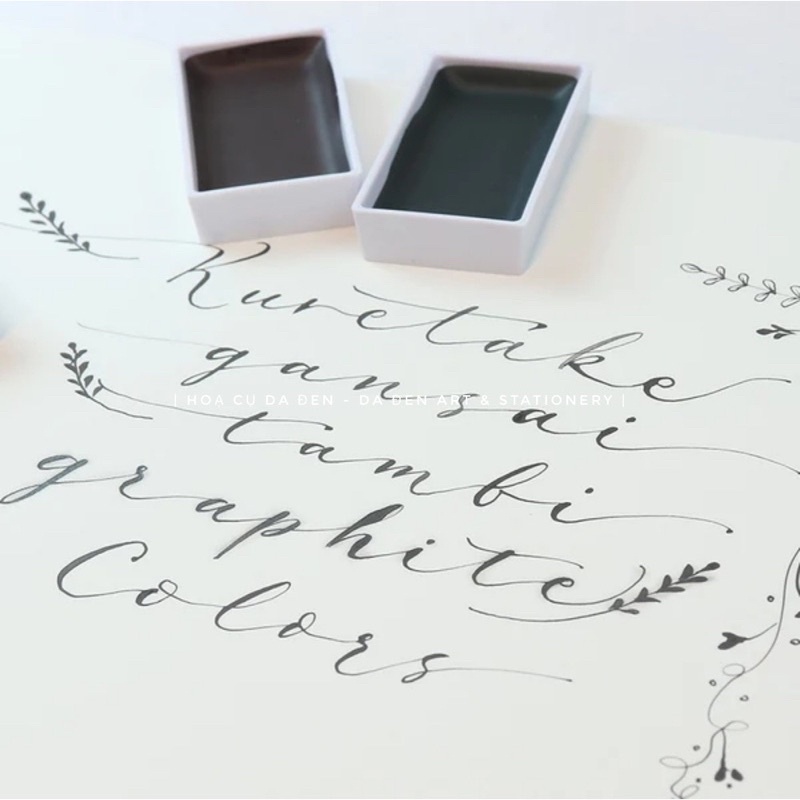 Kuretake
gansai
| HỌA CỤ DA ĐEN - DA ĐEN ART & STATIONERY |
tambi
graphite
Colors